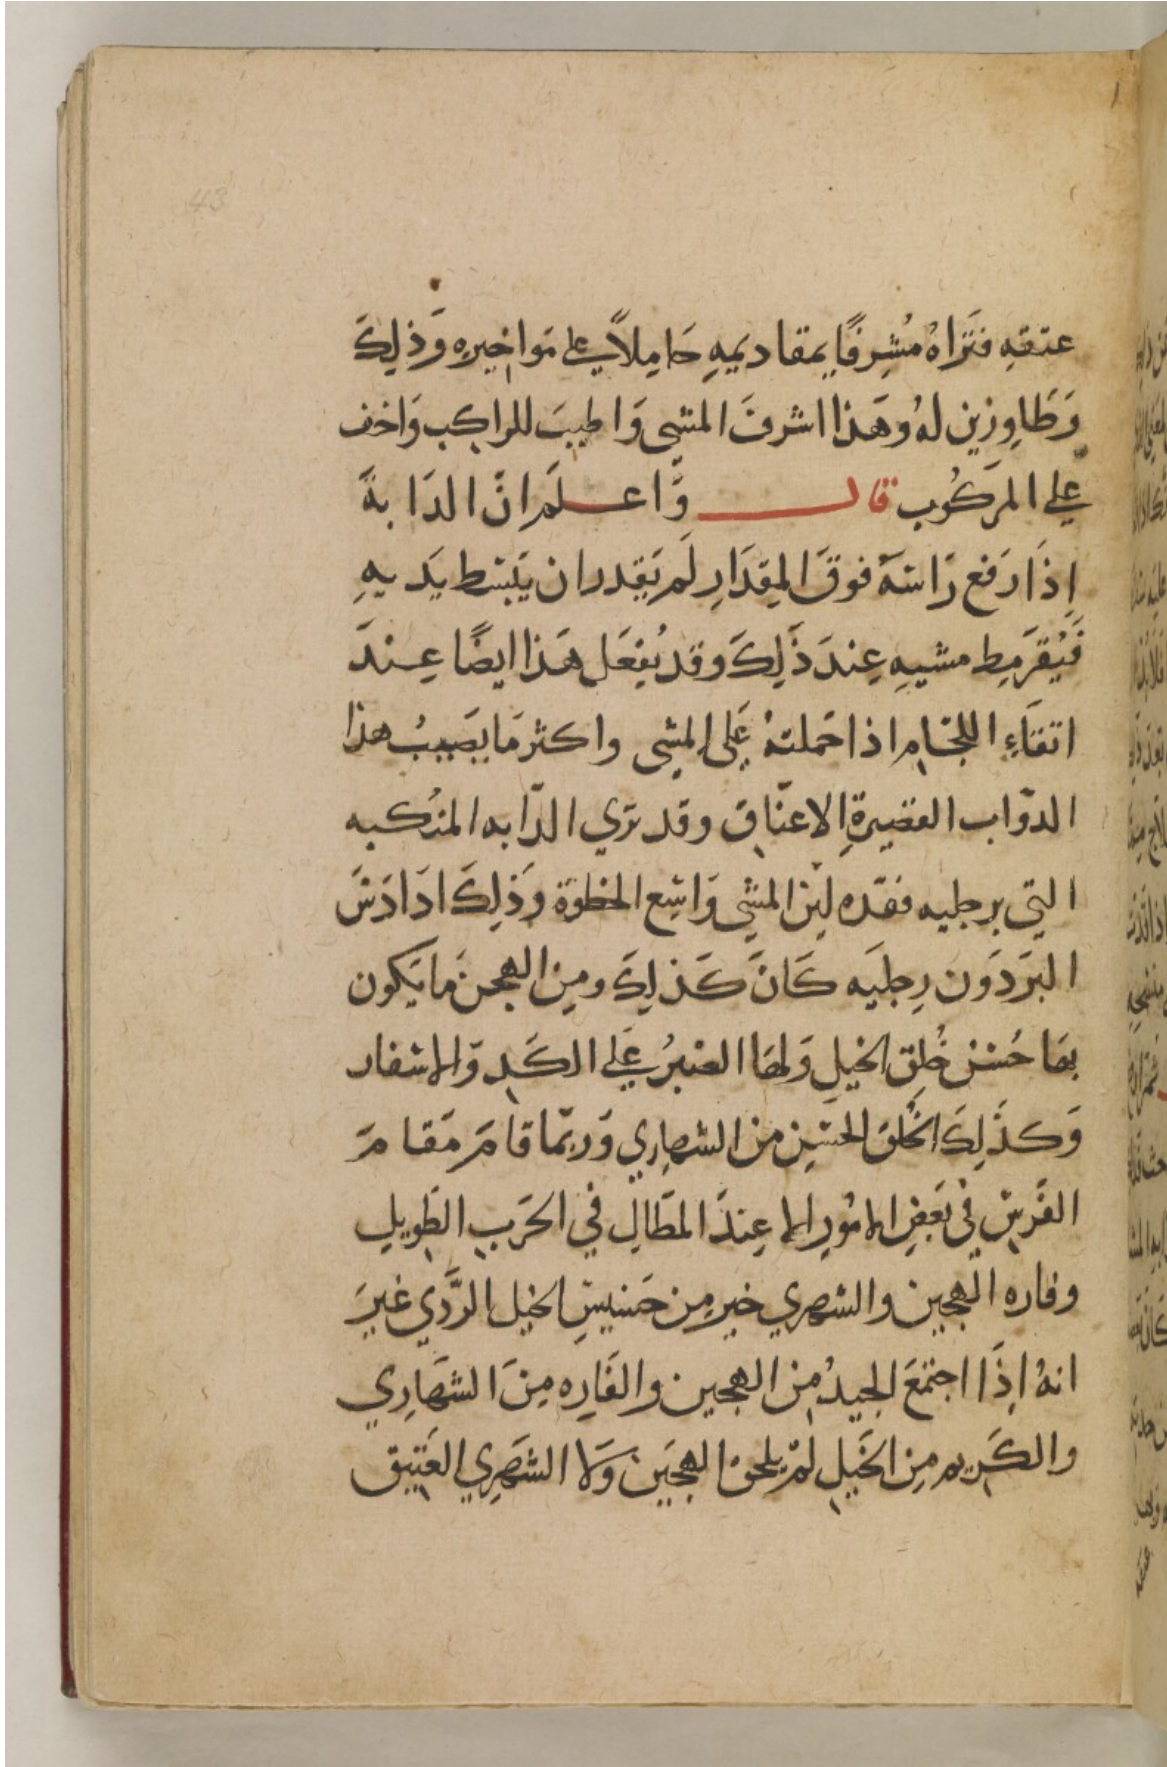 43
عتقهِ فتَراهُ مُشرِفًا بمقاديمهِ حَامِلاً على مَواخيره وَذلِكَ
وَطَاوزين لهُ وَهَذا اشرفَ المشى وَاطيبَ للراكب وَاخف
على المركُوب قال وَّاعلَم انّ الدَابةً
اِذَا رَفع رَاسَهُ فوقَ المِقدَارِ لَم يَقدر ان يَبسَط يَديهِ
فَيُقرَمِط مشيهِ عِندَ ذَلِكَ وقد يُفعَل هَذا ايضًا عِندَ
اتقاَءِ اللجَامِ اذا حَملتهُ عَلى المشِى واكثر مَا يصَيبُ هذا
الدوّاب القصَيرةِ الاعنّاق وقد تري الدّابه المنُكبه
التي برجليه فقدّم لين المشي وَاسِع الخطوة وَذلِكَ اذادَسَ
البرَدَون رِجليَه كَانَ كَذلِكَ ومِن الهجن مَا يَكون
بهَا حُسنن خُلِق الخيلِ وَلهَا الصَبرُ عَلى الكَدِ وَالاسفار
وَكذَلِكَ الخُلق الحسَنِ من الشهاري وَربّما قامَ مَقامَ
الفَرسِ في بَعَضِ الامُورِ الا عِندَ المطَالِ في الحَربِ الطَويلِ
وفاره الهجين والشهري خير مِن خسيسِ الخيل الرَّدي غيرَ
انهُ اِذَا اجتمعَ الجيدُ مِن الهجين والفَارِه مِنَ الشهَارِي
والكَريم مِن الخَيلِ لمَ يلحق الهجَين وَلا الشهَرِي العَتيق